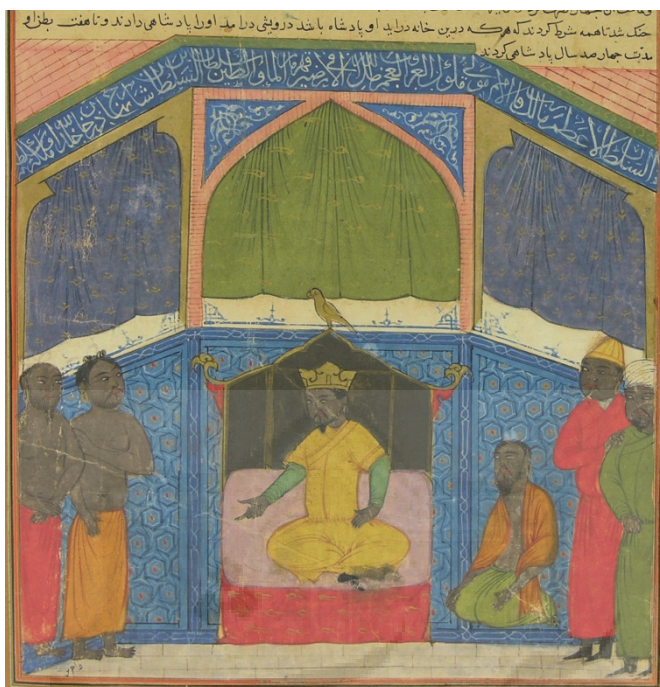 جنک شد تا همه شرط کردند که هرکه درین خانه دراید او پادشاه باشد درویشی درامد او را پادشاهی دادند و تا هفت بطن او
مدت چهارصد سال پادشاهی کردند
السلطان الاعظم مالک رقاب الامم مولی ملوک العرب العجم ظل الله الارضین قهرمان الماء والطین السلطان خلد الله ملکه